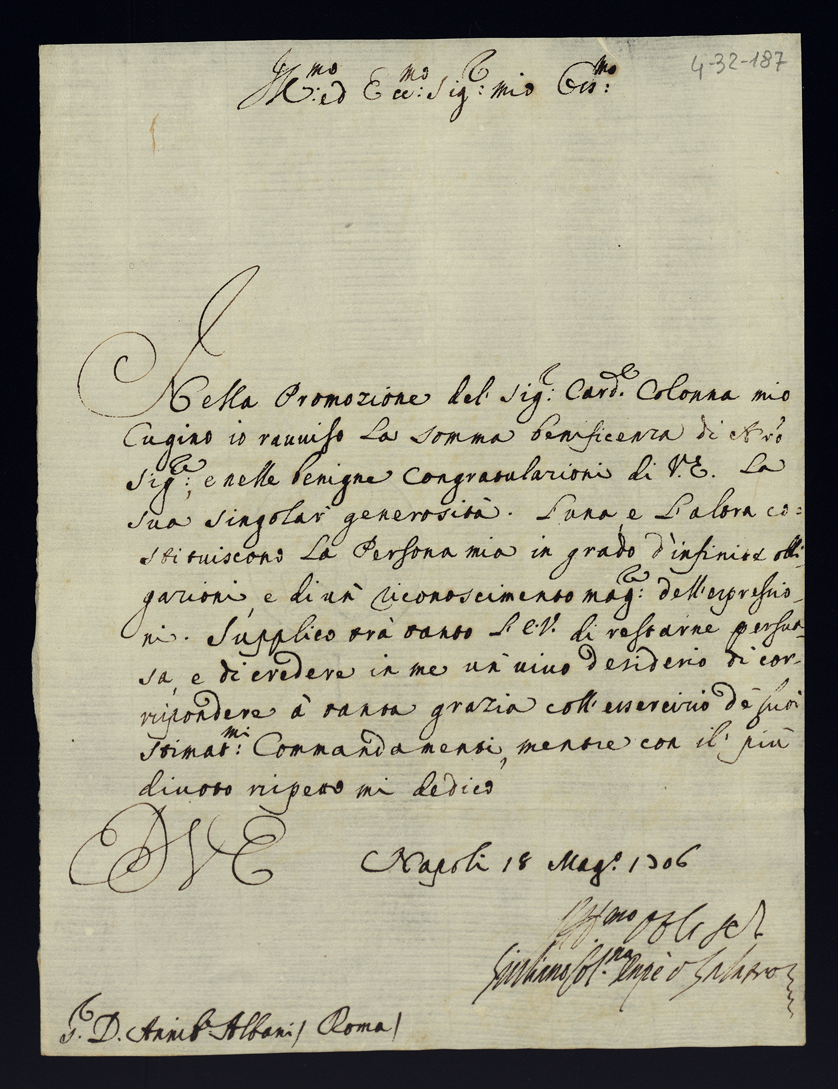 4-32-187
Ill.mo ed Ecc.mo Sig.r mio Oss.mo
Nella Promozione del Sig.r Card.le Colonna mio
Cugino io ravviso La somma benificenza di N'ro
Sig.re, e nelle benigne Congratulazioni di V.E. La
sua singolar generosità. L'una, e L'altra co=
stituiscono La Persona mia in grado d'infinite obli-
gazioni, e di un riconoscimento mag.re dell'espressio-
ni. Supplico trà tanto L'E.V. di restarne persua-
sa, e di credere in me un vivo desiderio di cor-
rispondere à tanta grazia coll'essercizio de suoi
stimat.mi Commandamenti, mentre con il più
divoto rispetto mi dedico
D V E
Napoli 18 Mag.o 1706
Giuliano Col.na
S.r D. Annib.e Albani / Roma /